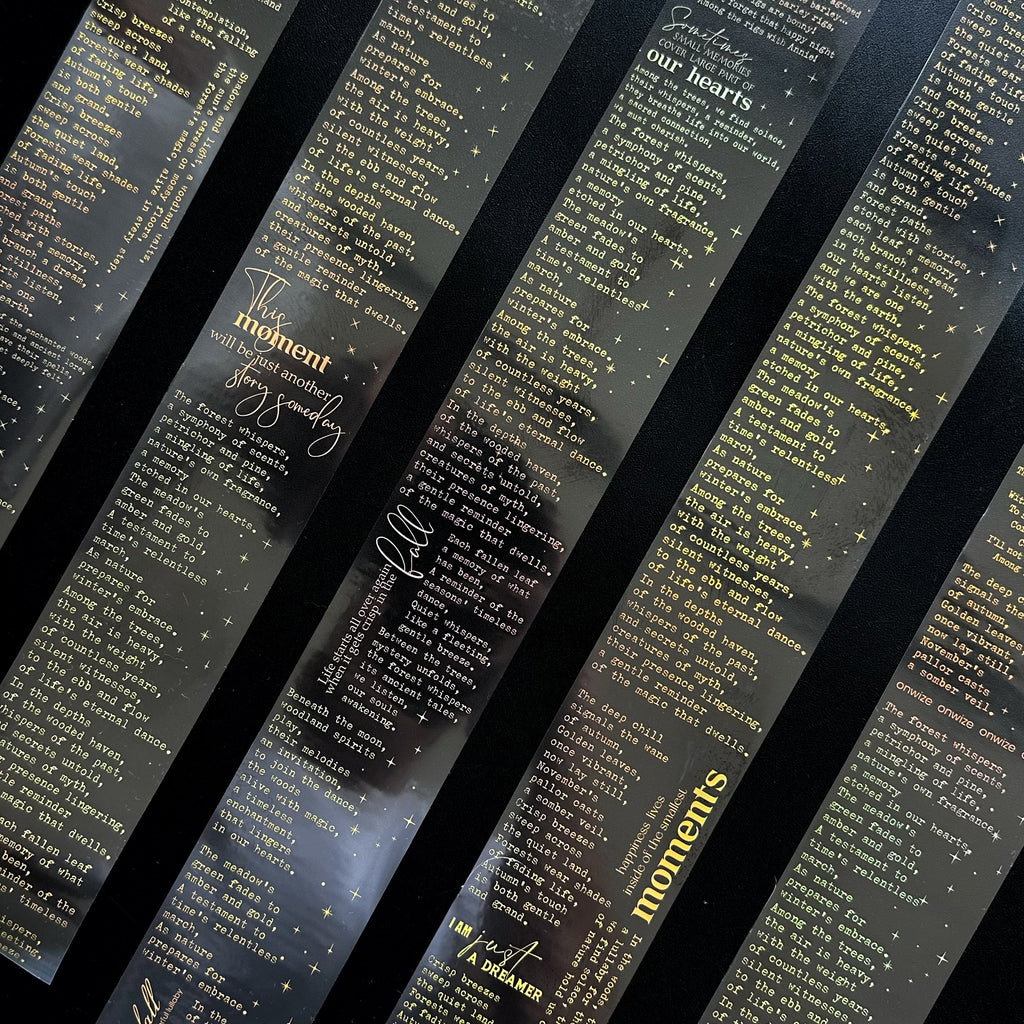 contemplation,
like the falling
of a tear.
Crisp breezes
sweep across
the quiet land,
Forests wear shades
of fading life,
Autumn's touch
is both gentle
and grand.
Crisp breezes
sweep across
the quiet land,
Forests wear shades
of fading life,
Autumn's touch
and both gentle
and grand.
forest paths
with stories,
leaf a memory,
branch a dream,
stillness,
listen,
are one
earth.
Shadows and light,
a woodland waltz,
the sun's caress on mossy floors,
the forest's magic,
alive in every step.
the enchanted woods,
and ancient lore,
their spells,
deeply felt.
and gold,
testament to
time's relentless
march,
As nature
prepares for
winter's embrace.
Among the trees,
the air is heavy,
with the weight
of countless years,
silent witnesses,
to the ebb and flow
of life's eternal dance.
In the depths
of the wooded haven,
whispers of the past,
and secrets untold,
creatures of myth,
their presence lingering,
a gentle reminder
of the magic that
dwells.
This
moment
will be just another
story someday
The forest whispers
a symphony of scents,
petrichor and pine,
a mingling of life,
nature's own fragrance,
a memory
etched in our hearts.
The meadow's
green fades to
amber and gold,
A testament to
time's relentless
march,
As nature
prepares for
winter's embrace.
Among the trees,
the air is heavy,
with the weight
of countless years,
silent witnesses,
to the ebb and flow
of life's eternal dance.
In the depths
of the wooded haven,
whispers of the past,
secrets untold,
of myth,
presence lingering,
reminder
magic that dwells.
each fallen leaf
a memory of what
been,
reminder of the
timeless
forget that happy night
Among the rigs with Annie!
Sometimes
SMALL MEMORIES
COVER LARGE PART OF
our hearts
Among the trees, we find solace,
their whispers, a reminder,
they breathe life into our world,
a sacred connection,
we must cherish.
The forest whispers,
a symphony of scents,
petrichor and pine,
a mingling of life,
nature's own fragrance,
a memory
etched in our hearts.
The meadow's
green fades to
amber and gold,
A testament to
time's relentless
march,
As nature
prepares for
winter's embrace.
Among the trees,
the air is heavy,
with the weight
of countless years,
silent witnesses,
to the ebb and flow
of life's eternal dance.
In the depths
of the wooded haven,
whispers of the past,
and secrets untold,
creatures of myth,
their presence lingering,
a gentle reminder
of the magic that dwells.
Life starts all over again
when it gets crisp in the
fall
Each fallen leaf
a memory of what
has been,
A reminder of the
seasons' timeless
dance,
Quiet whispers,
like a fleeting,
gentle breeze.
Between the trees,
mystery unfolds,
the forest whispers
its ancient tales,
we listen,
our souls
awakening.
Beneath the moon,
woodland spirits
play,
their melodies
an invitation,
to join the dance,
the woods
alive with magic,
a timeless
enchantment,
that lingers
in our hearts.
The meadow's
green fades to
amber and gold,
A testament to
time's relentless
march,
As nature
prepares for
winter's embrace.
In the
fall
lullaby
Crisp breezes
sweep across
the quiet land,
Forests wear shades
of fading life,
Autumn's touch
is both gentle
and grand.
Crisp breezes
sweep across
the quiet land,
Forests wear shades
of fading life,
Autumn's touch
is both gentle
and grand.
Forest paths
etched with stories,
each leaf a memory,
each branch a dream,
in the stillness,
we listen,
our hearts
and we are one
with the earth.
The forest whispers,
a symphony of scents,
petrichor and pine,
a mingling of life,
nature's own fragrance,
a memory
etched in our hearts.
The meadow's
green fades to
amber and gold,
A testament to
time's relentless
march,
As nature
prepares for
winter's embrace.
Among the trees,
the air is heavy,
with the weight
of countless years,
silent witnesses,
to the ebb and flow
of life's eternal dance.
In the depths
of the wooded haven,
whispers of the past,
and secrets untold,
creatures of myth,
their presence lingering
a gentle reminder
of the magic that
dwells.
The deep chill
signals the wane
of autumn,
Golden leaves,
once vibrant,
now lay still,
November's
pallor casts
a somber veil.
Crisp breezes
sweep across
the quiet land,
Forests wear shades
of fading life,
Autumn's touch
is both gentle
and grand.
happiness lives
inside of the smallest
moments
I AM
just
A DREAMER
Crisp breezes
sweep across
the quiet land
Forests wear
of fading
Autumn's
In the woods'
lullaby,
we find solace,
The deep
signals the
of autumn,
Golden leaves
once vibrant,
now lay still,
November's
pallor casts
a somber veil.
onwize onwize onwize
The forest whispers,
a symphony of scents,
petrichor and pine,
a mingling of life,
nature's own fragrance,
a memory
etched in our hearts.
The meadow's
green fades to
amber and gold,
A testament to
time's relentless
march,
As nature
prepares for
winter's embrace.
Among the trees,
the air is heavy,
with the weight
of countless years,
silent witnesses,
to the ebb and flow
of life's
In the